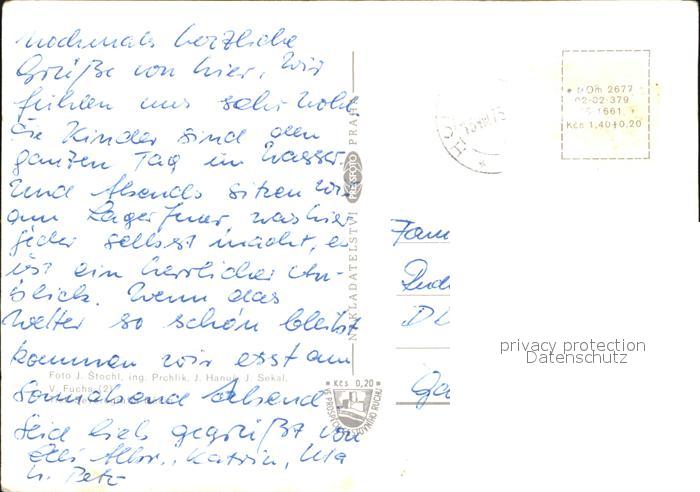 nochmals herzliche
Grüße von hier, Wir
fühlen uns sehr wohl
Die Kinder sind den
ganzen Tag im Wasser.
Und Abends sitzen Wir
am Lagerfeuer, was hier
jeder selbst macht, es
ist ein herrlicher An-
blick. Wenn das
Wetter so schön bleibt
kommen wir erst am
Sonnabend Abend
Seid lieb gegrüßt von
Katrin, Uta
u. Petr
Foto J. Štochl, ing. Prchlík, J. Hanuš, J. Sekal,
V. Fuchs (2)
NAKLADATELSTVÍ PRESSFOTO PRAHA
* Kčs 0,20 *
VE PROSPĚCH
* MOm 2677
02-02-379
1661
Kčs 1,40+0,20
Fam
DL
privacy protection
Datenschutz